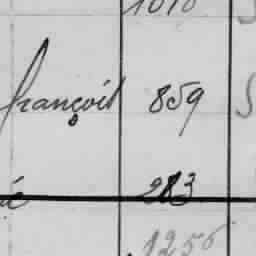 1010
françois 859
283
1256